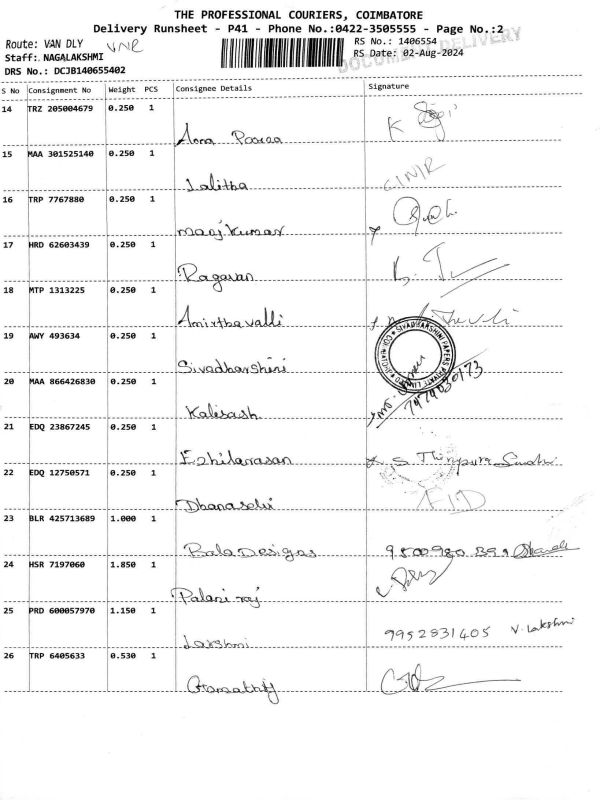 THE PROFESSIONAL COURIERS, COIMBATORE
Delivery Runsheet - P41 - Phone No.:0422-3505555 - Page No.:2
Route: VAN DLY VNR
RS No.: 1406554
Staff: NAGALAKSHMI
RS Date: 02-Aug-2024
DRS No.: DCJB140655402
S No Consignment No Weight PCS Consignee Details Signature
14 TRZ 205004679 0.250 1
Anna Poorna
15 MAA 301525140 0.250 1
Lalitha
16 TRP 7767880 0.250 1
manjkumar
17 HRD 62603439 0.250 1
Ragavan
18 MTP 1313225 0.250 1
Amirthavalli
19 AWY 493634 0.250 1
SIVADHARSHINI PAPERS PRIVATE LIMITED
Sivadharshini
20 MAA 866426830 0.250 1
7474030173
Kalesash
21 EDQ 23867245 0.250 1
Ezhilarasan
22 EDQ 12750571 0.250 1
Dhanaselvi
23 BLR 425713689 1.000 1
Bala Desigas
24 HSR 7197060 1.850 1
Palani raj
25 PRD 600057970 1.150 1
Lakshmi 9952831405 V. Lakshmi
26 TRP 6405633 0.530 1